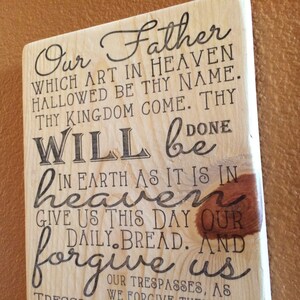 Our Father
which art in Heaven
hallowed be thy Name.
Thy Kingdom come. Thy
WILL be DONE
in Earth as it is in
heaven
Give us this day our
daily bread. And
forgive us
our trespasses, as
we forgive